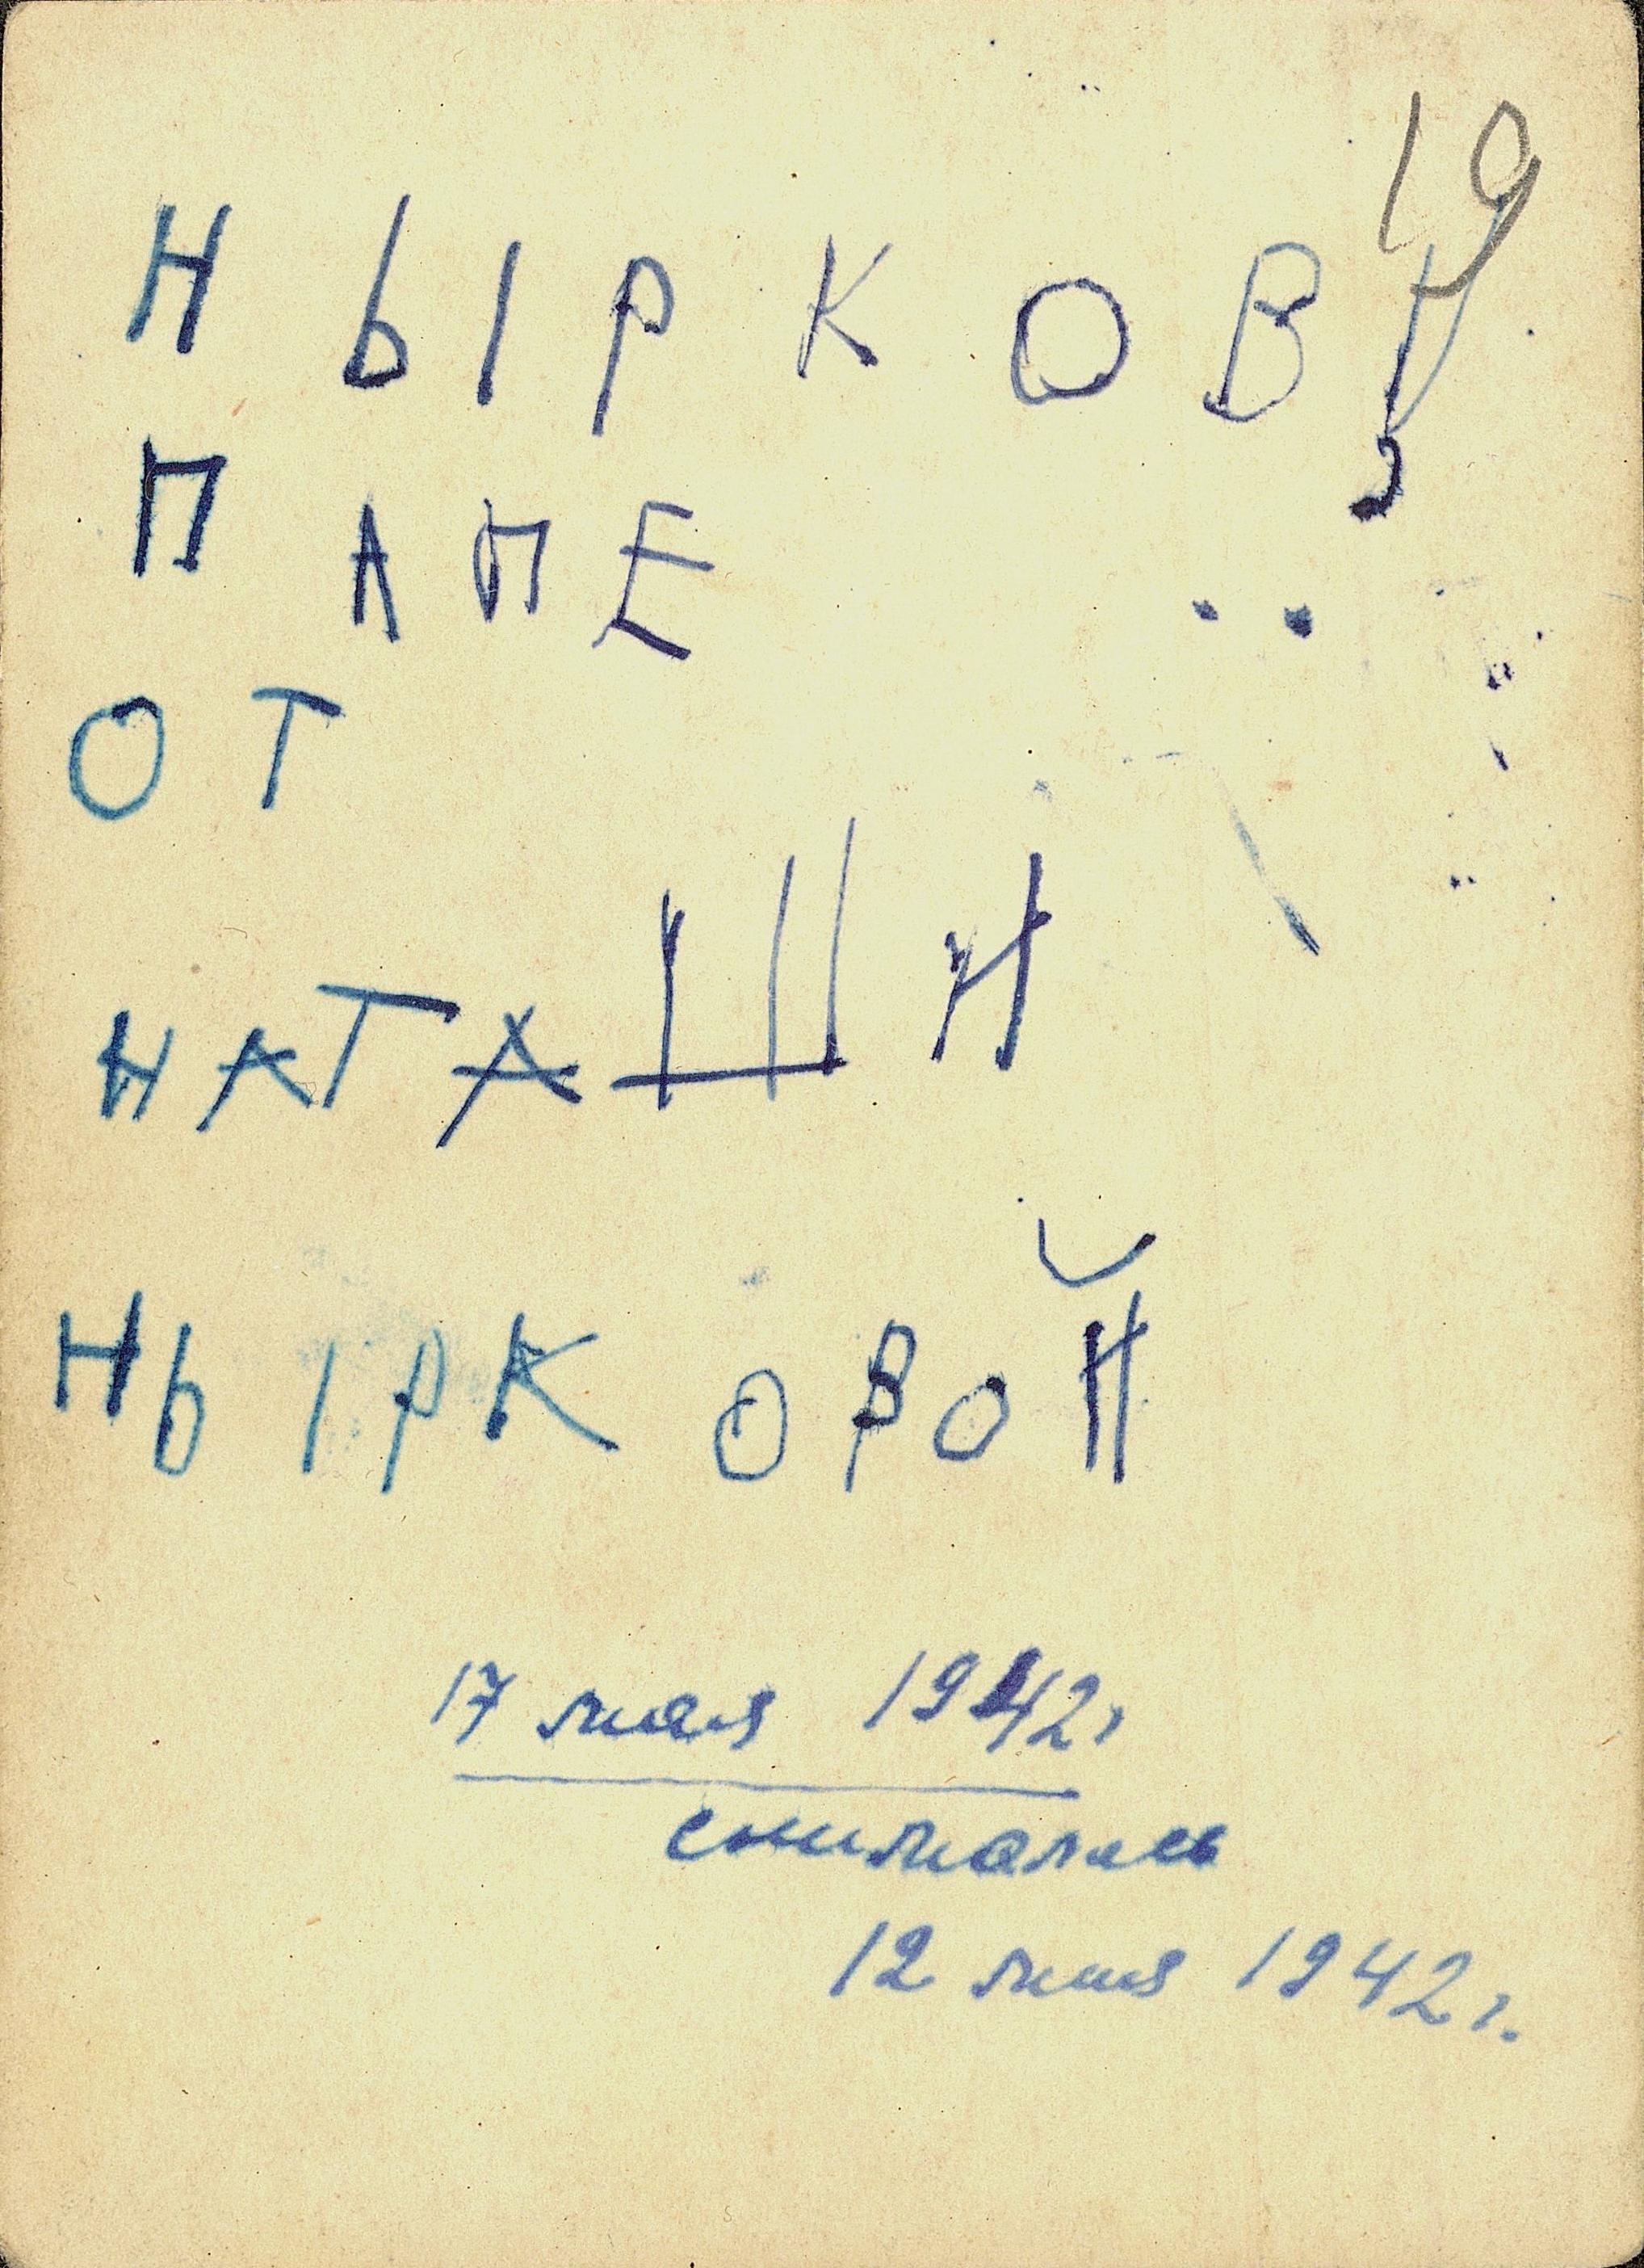 19
НЫРКОВУ
ПАПЕ
ОТ
НАТАШИ
НЫРКОВОЙ
17 мая 1942г
снималась
12 мая 1942г.